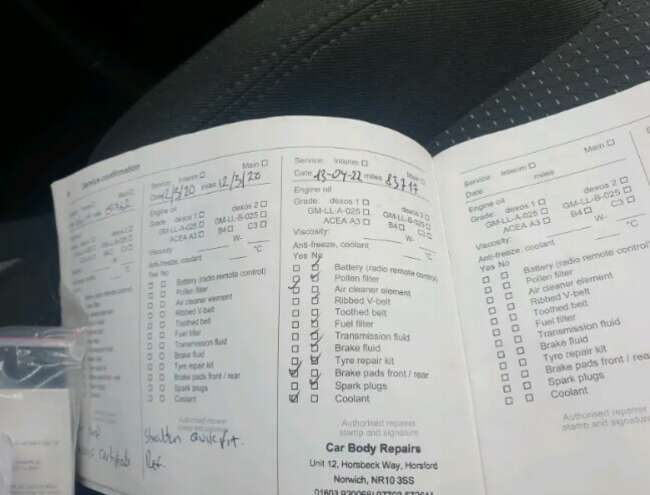 Service confirmation
Main
Engine oil
dexos 1
dexos 2
GM-LL-A-025 GM-LL-B-025
ACEA A3 B4 C3
W- °C
coolant
Yes No
(radio remote control)
Pollen filter
element
V-belt
belt
fluid
kit
front / rear
Service: Interim Main
Date 12/3/20 miles 12/3/20
Engine oil
Grade: dexos 1 dexos 2
GM-LL-A-025 GM-LL-B-025
ACEA A3 B4 C3
Viscosity: W- °C
Anti-freeze, coolant
Yes No
Battery (radio remote control)
Pollen filter
Air cleaner element
Ribbed V-belt
Toothed belt
Fuel filter
Transmission fluid
Brake fluid
Tyre repair kit
Brake pads front / rear
Spark plugs
Coolant
Authorised repairer
stamp and signature
Service: Interim Main
Date 13-04-22 miles 83717
Engine oil
Grade: dexos 1 dexos 2
GM-LL-A-025 GM-LL-B-025
ACEA A3 B4 C3
Viscosity: W- °C
Anti-freeze, coolant
Yes No
Battery (radio remote control)
Pollen filter
Air cleaner element
Ribbed V-belt
Toothed belt
Fuel filter
Transmission fluid
Brake fluid
Tyre repair kit
Brake pads front / rear
Spark plugs
Coolant
Authorised repairer
stamp and signature
Car Body Repairs
Unit 12, Horsbeck Way, Horsford
Norwich, NR10 3SS
Service: Interim Main
Date miles
Engine oil
Grade: dexos 1 dexos 2
GM-LL-A-025 GM-LL-B-025
ACEA A3 B4 C3
Viscosity: W- °C
Anti-freeze, coolant
Yes No
Battery (radio remote control)
Pollen filter
Air cleaner element
Ribbed V-belt
Toothed belt
Fuel filter
Transmission fluid
Brake fluid
Tyre repair kit
Brake pads front / rear
Spark plugs
Coolant
Authorised repairer
stamp and signature